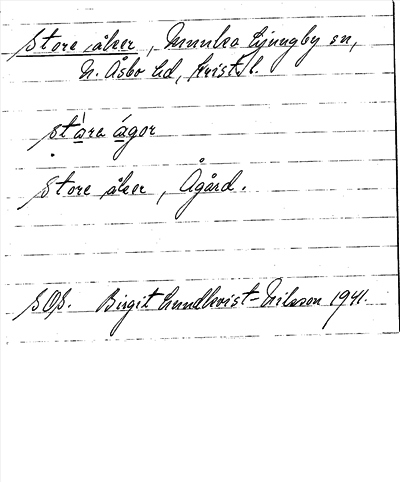 Store åker, Munka Ljungby sn,
N. Åsbo hd, Krist. l.
stára ágor
Store åker, Ågård.
SOS. Birgit Lundkvist-Nilsson 1941.